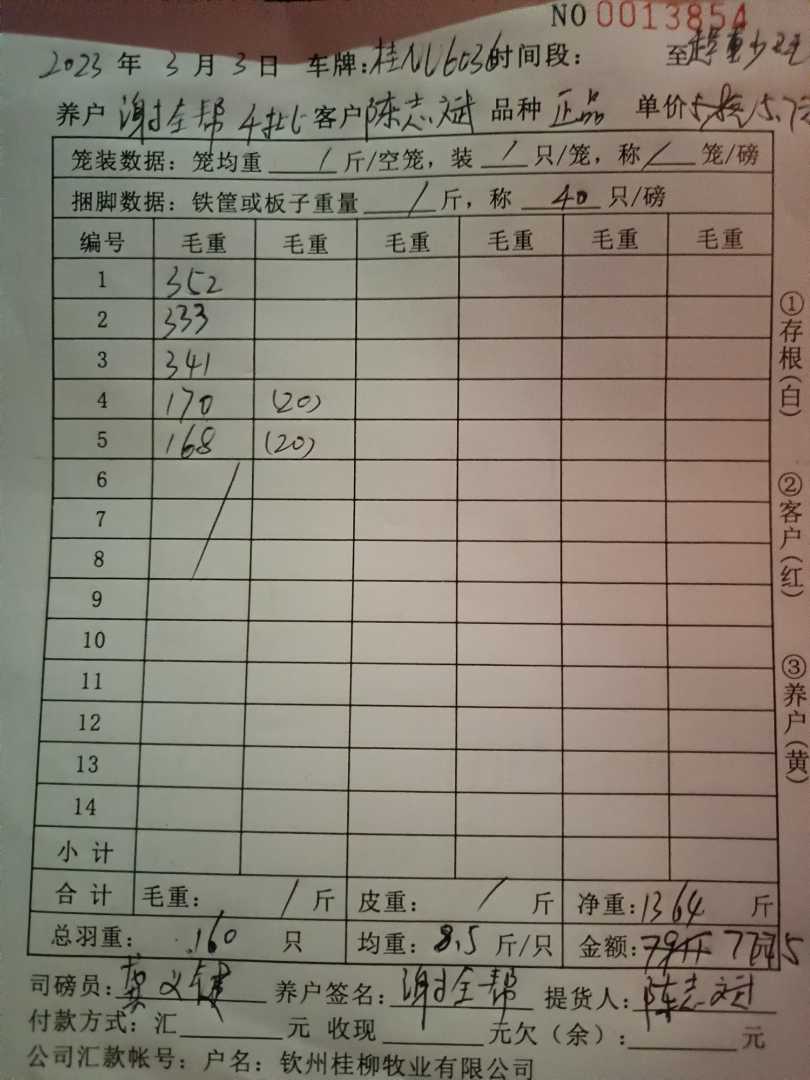 NO 0013854
2023 年 3 月 3 日 车牌: 桂NU6036 时间段: 至
养户 谢全帮 4批 客户 陈志斌 品种 正品 单价 5.7
笼装数据: 笼均重 / 斤/空笼, 装 / 只/笼, 称 / 笼/磅
捆脚数据: 铁筐或板子重量 / 斤, 称 40 只/磅
编号 毛重 毛重 毛重 毛重 毛重 毛重
1 352
2 333
3 341
4 170 (20)
5 168 (20)
6
7
8
9
10
11
12
13
14
小计
合计 毛重: / 斤 皮重: / 斤 净重: 1364 斤
总羽重: 160 只 均重: 8.5 斤/只 金额: 7775
司磅员: 养户签名: 谢全帮 提货人: 陈志斌
付款方式: 汇 元 收现 元欠(余): 元
公司汇款帐号: 户名: 钦州桂柳牧业有限公司
①存根(白)
②客户(红)
③养户(黄)